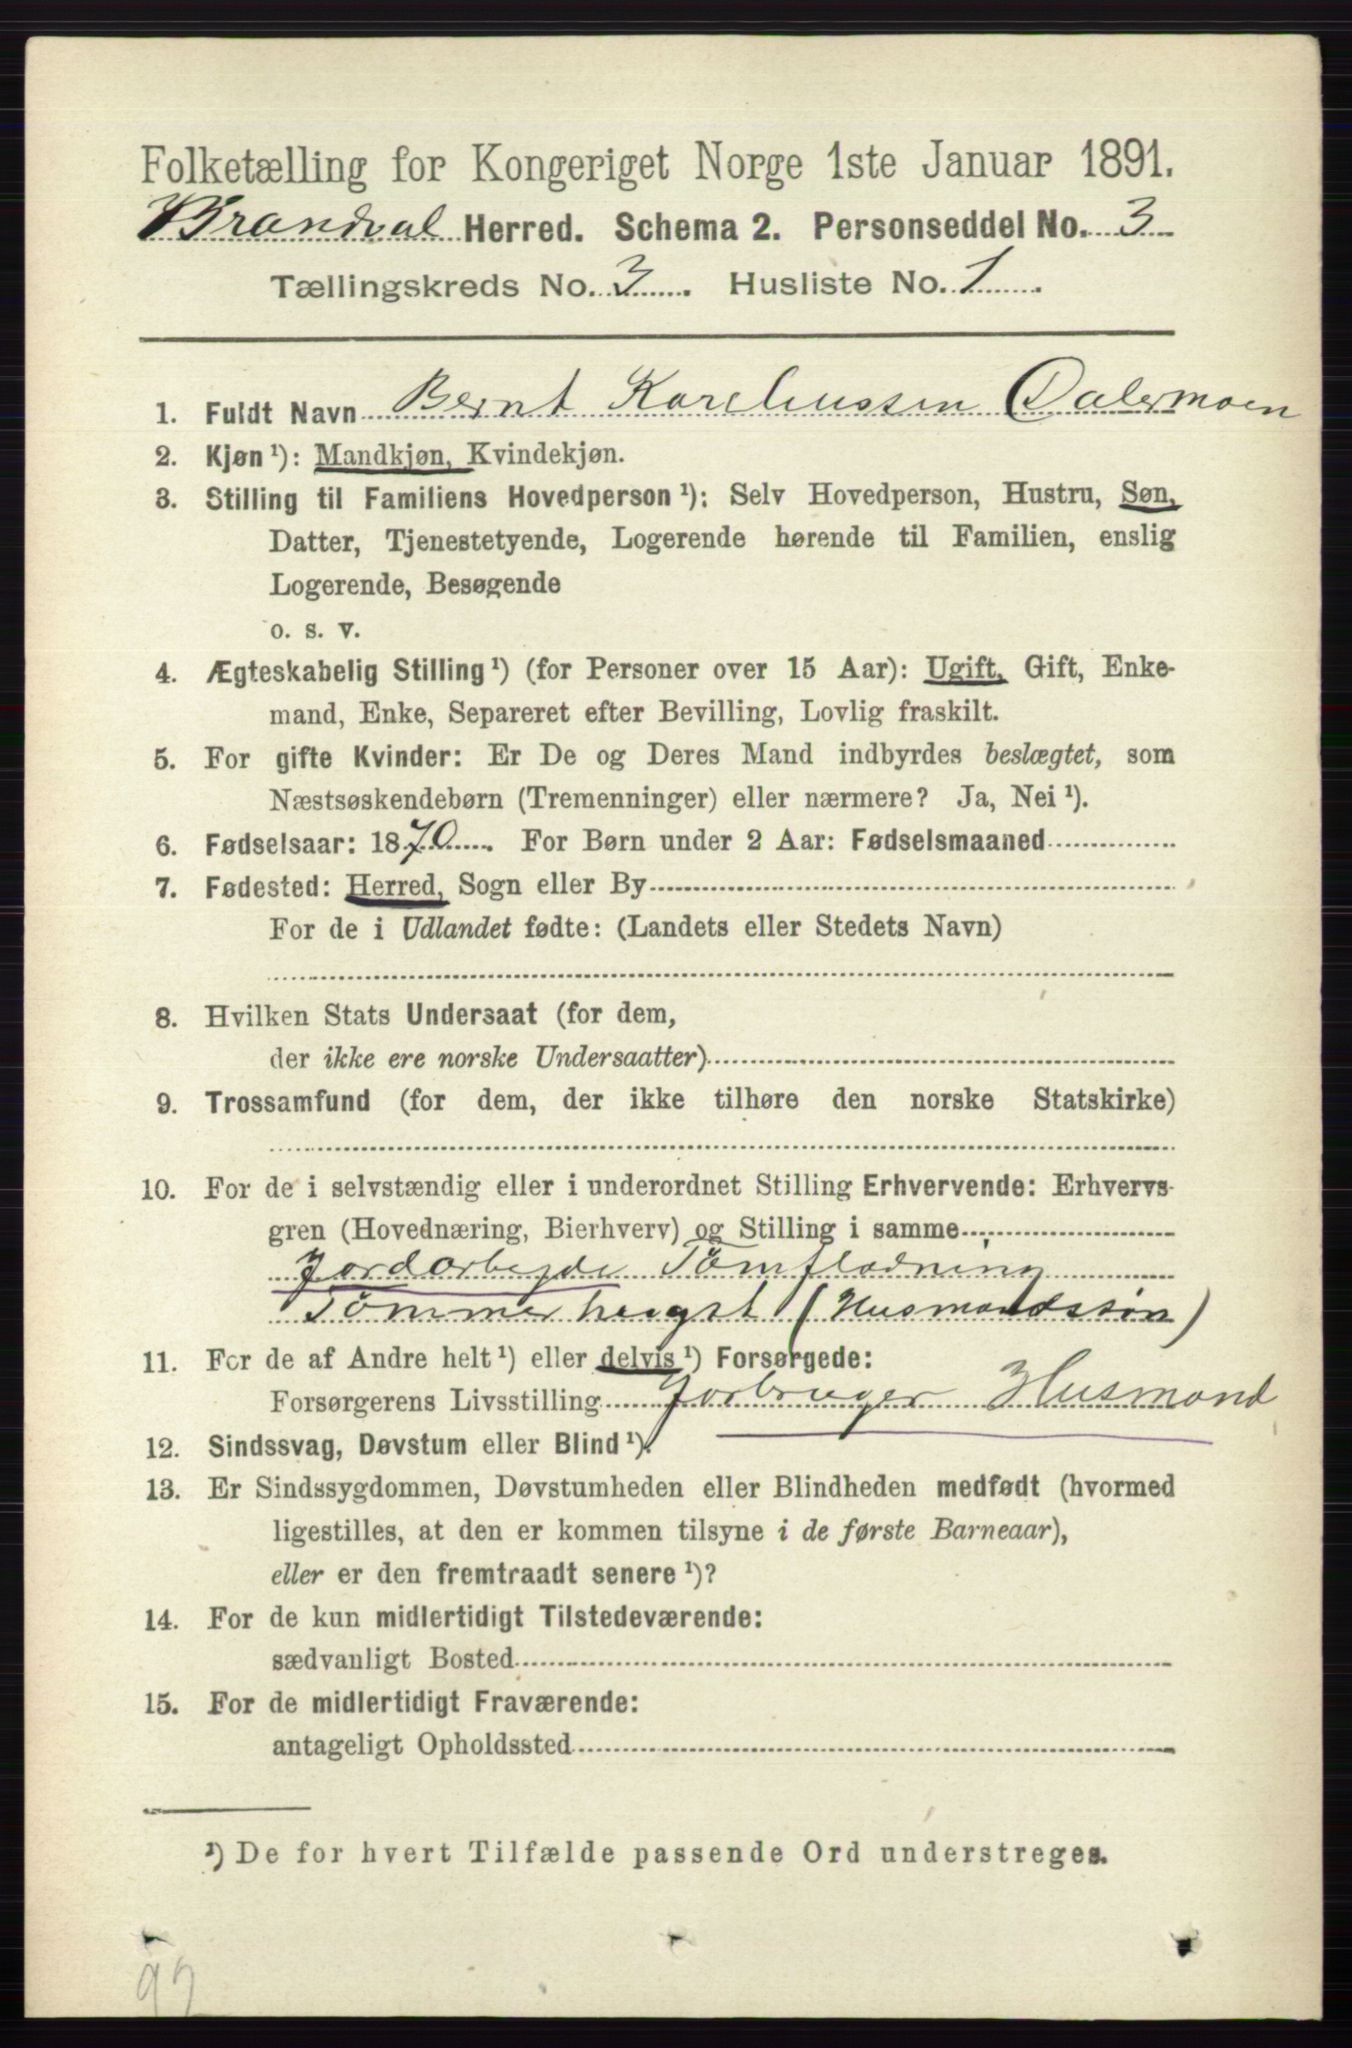 Folketælling for Kongeriget Norge 1ste Januar 1891.
Brandval Herred. Schema 2. Personseddel No. 3
Tællingskreds No. 3. Husliste No. 1.
1. Fuldt Navn Bernt Kareliussen Dalermoen
2. Kjøn ¹): Mandkjøn, Kvindekjøn.
3. Stilling til Familiens Hovedperson ¹): Selv Hovedperson, Hustru, Søn,
Datter, Tjenestetyende, Logerende hørende til Familien, enslig
Logerende, Besøgende
o. s. v.
4. Ægteskabelig Stilling ¹) (for Personer over 15 Aar): Ugift, Gift, Enke-
mand, Enke, Separeret efter Bevilling, Lovlig fraskilt.
5. For gifte Kvinder: Er De og Deres Mand indbyrdes beslægtet, som
Næstsøskendebørn (Tremenninger) eller nærmere? Ja, Nei ¹).
6. Fødselsaar: 1870. For Børn under 2 Aar: Fødselsmaaned
7. Fødested: Herred, Sogn eller By
For de i Udlandet fødte: (Landets eller Stedets Navn)
8. Hvilken Stats Undersaat (for dem,
der ikke ere norske Undersaatter)
9. Trossamfund (for dem, der ikke tilhøre den norske Statskirke)
10. For de i selvstændig eller i underordnet Stilling Erhvervende: Erhvervs-
gren (Hovednæring, Bierhverv) og Stilling i samme
Jordarbeyde Tømflødning
Tømmerhugst (Husmandssøn)
11. For de af Andre helt ¹) eller delvis ¹) Forsørgede:
Forsørgerens Livsstilling Jorbruger Husmand
12. Sindssvag, Døvstum eller Blind ¹).
13. Er Sindssygdommen, Døvstumheden eller Blindheden medfødt (hvormed
ligestilles, at den er kommen tilsyne i de første Barneaar),
eller er den fremtraadt senere ¹)?
14. For de kun midlertidigt Tilstedeværende:
sædvanligt Bosted
15. For de midlertidigt Fraværende:
antageligt Opholdssted
¹) De for hvert Tilfælde passende Ord understreges.
92